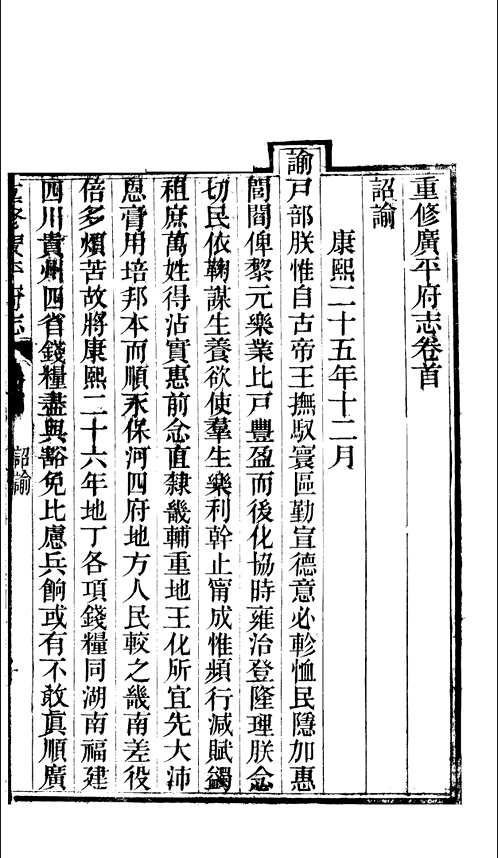 重修廣平府志卷首
詔諭
康熙二十五年十二月
諭戸部朕惟自古帝王撫馭寰區勤宣德意必軫恤民隱加惠
閭閻俾黎元樂業比戸豐盈而後化協時雍治登隆理朕念
切民依鞠謀生養欲使羣生樂利幹止甯成惟頻行減賦蠲
租庶萬姓得沾實惠前念直隸畿輔重地王化所宜先大沛
恩膏用培邦本而順永保河四府地方人民較之畿南差役
倍多煩苦故將康熙二十六年地丁各項錢糧同湖南福建
四川貴州四省錢糧盡與豁免比慮兵餉或有不敷眞順廣
重修廣平府志
詔諭